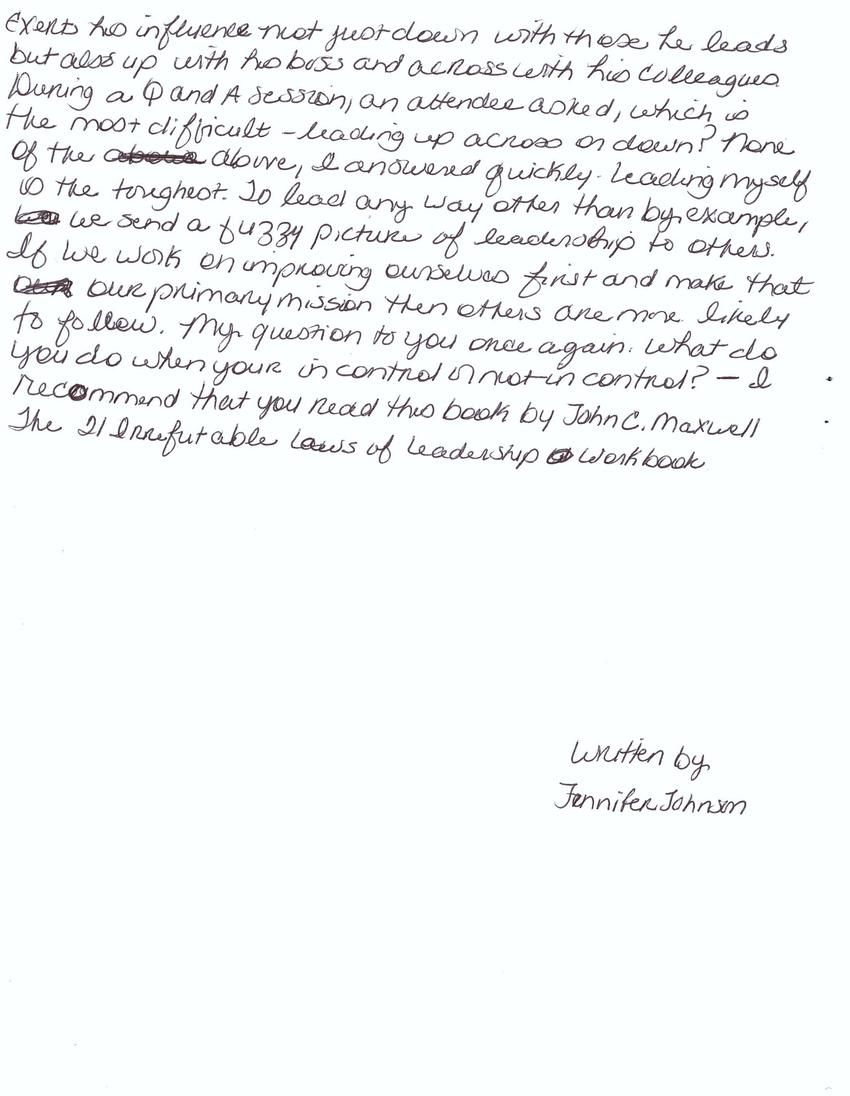 Exerts his influence not just down with those he leads
but also up with his boss and across with his colleagues
During a Q and A session, an attendee asked, which is
the most difficult - leading up across or down? None
of the above, I answered quickly. Leading myself
is the toughest. To lead any way other than by example,
we send a fuzzy picture of leadership to others.
If we work on improving ourselves first and make that
our primary mission then others are more likely
to follow. My question to you once again. What do
you do when your in control or not in control? - I
recommend that you read this book by John C. Maxwell
The 21 Irrefutable Laws of Leadership Workbook
Written by
Jennifer Johnson